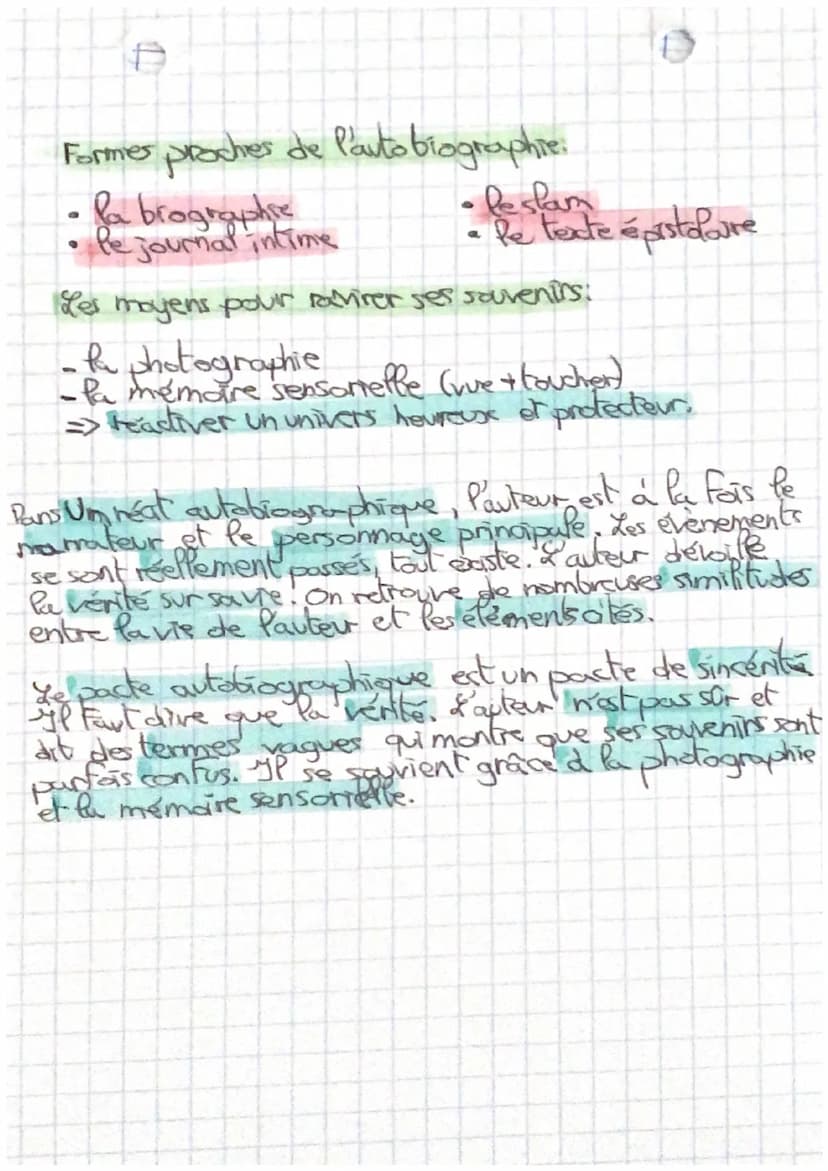 Formes proches de l'autobiographie:
• la biographie
• le journal intime
• le slam
• le texte épistolaire
Les moyens pour raviver ses souvenirs:
- la photographie
- la mémoire sensorielle (vue + toucher)
=> réactiver un univers heureux et protecteur.
Dans Un récit autobiographique, l'auteur est à la fois le
narrateur et le personnage principale. Les évènements
se sont réellement passés, tout existe. L'auteur dévoile
la vérité sur sa vie. On retrouve de nombreuses similitudes
entre la vie de l'auteur et les éléments cités.
Le pacte autobiographique est un pacte de sincérité
Il faut dire que la vérité. L'auteur n'est pas sûr et
dit des termes vagues qui montre que ses souvenirs sont
parfois confus. Il se souvient grâce à la photographie
et la mémoire sensorielle.